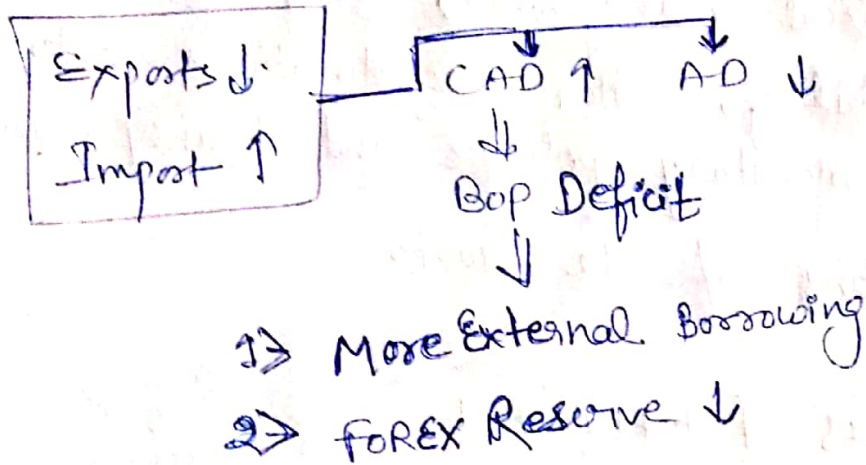 Exports ↓
Import ↑
CAD ↑ AD ↓
⇓
BOP Deficit
⇓
1> More External Borrowing
2> FOREX Reserve ↓